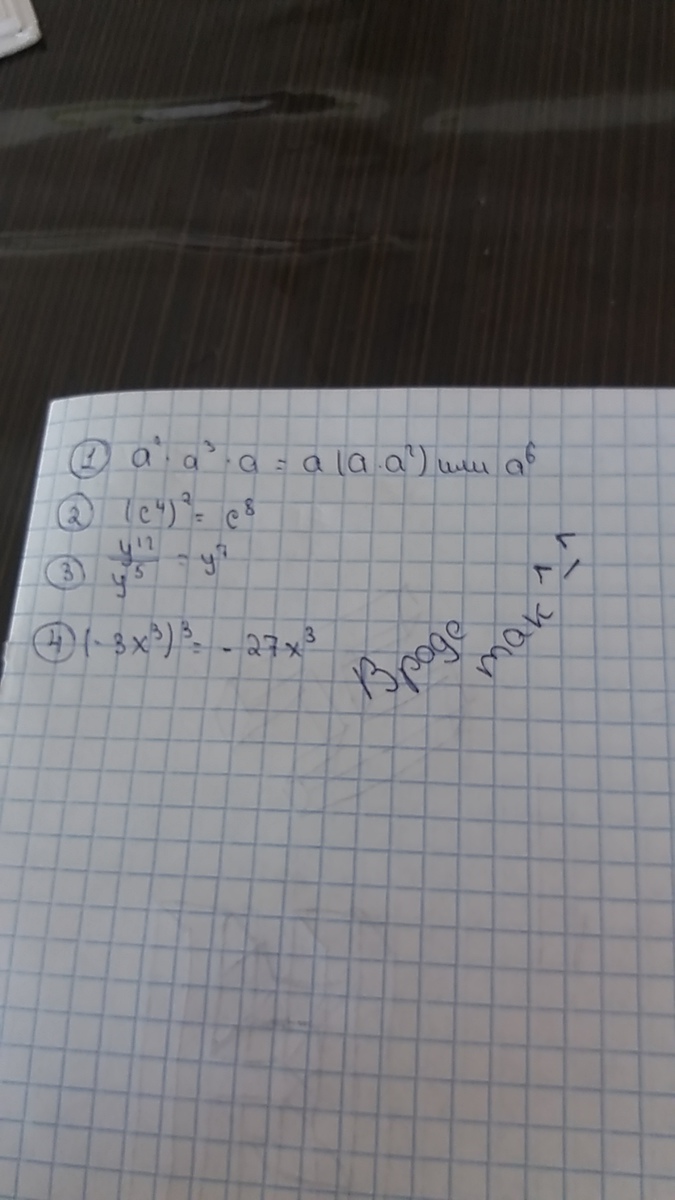 ① a² · a³ · a = a (a · a²) или a⁶
② (c⁴)² = c⁸
③ y¹²/y⁵ = y⁷
④ (-3x³)³ = -27x³
Вроде
так